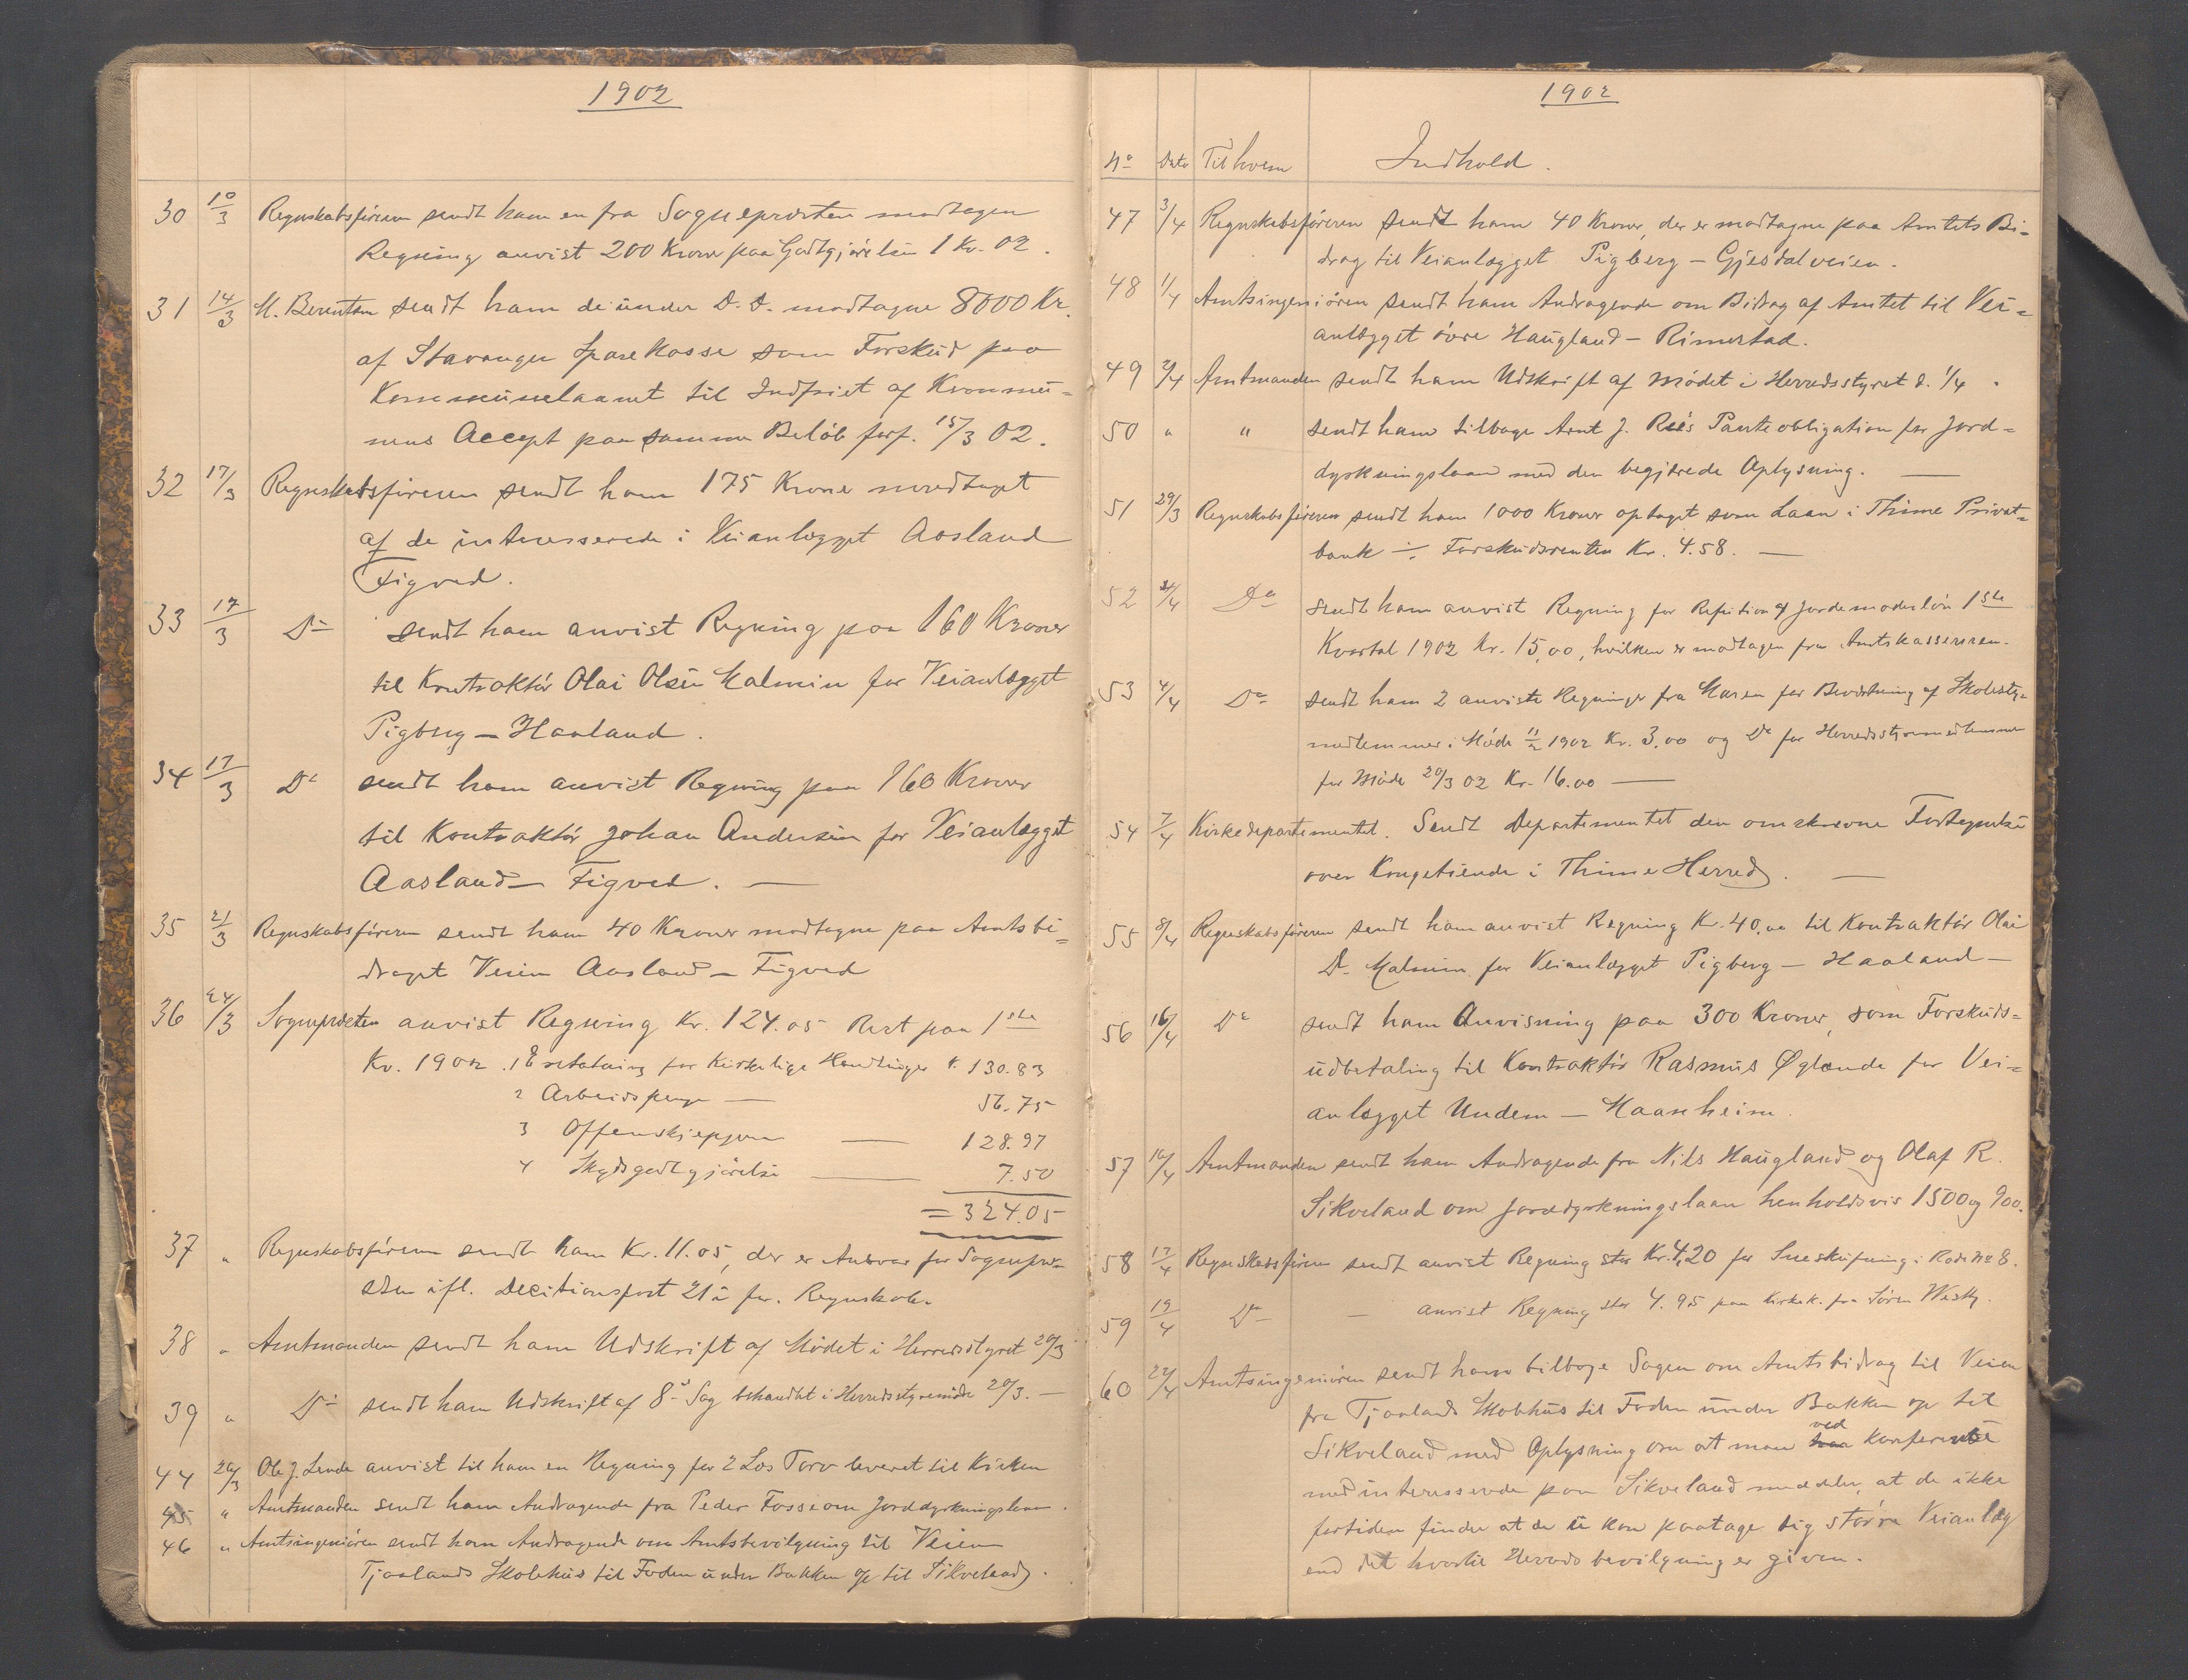 1902
30 10/3 Regnskabsføreren sendt ham en fra Sognepræsten modtagen
Regning anvist 200 Kroner paa Godtgjørelsen 1 Kv. 02.
31 14/3 M. Berentsen sendt ham de under D. D. modtagne 8000 Kr.
af Stavanger Sparekasse som Forskud paa
Kommunelaanet til Indfriet af Kommu-
nens Accept paa samme Beløb forf. 15/3 02.
32 17/3 Regnskabsføreren sendt ham 175 Kroner modtaget
af de interesserede i Veianlægget Aasland
Tigved.
33 17/3 Do sendt ham anvist Regning paa 160 Kroner
til Kontraktør Olai Olsen Malmin for Veianlægget
Pigberg – Haaland.
34 17/3 Do sendt ham anvist Regning paa 160 Kroner
til Kontraktør Johan Andersen for Veianlægget
Aasland – Tigved. —
35 21/3 Regnskabsføreren sendt ham 40 Kroner modtagne paa Amtsbi-
draget Veien Aasland – Tigved
36 24/3 Sognepræsten anvist Regning Kr. 124.05 Rest paa 1ste
Kv. 1902. 1 Erstatning for Kirkelige Handlinger K. 130.83
2 Arbeidspenge — 56.75
3 Offerskjepperne — 128.97
4 Skydsgodtgjørelse — 7.50
= 324.05
37 " Regnskabsføreren sendt ham Kr. 11.05, der er Ansvar for Sognepræ-
sten ifl. Decitionspost 21 i for. Regnskab.
38 " Amtmanden sendt ham Udskrift af Mødet i Herredsstyret 20/3
39 " Do sendt ham Udskrift af 8de Sag behandlet i Herredsstyremøde 20/3. —
44 26/3 Ole J. Lende anvist til ham en Regning for 2 Læs Torv leveret til Kirken
45 " Amtmanden sendt ham Andragende fra Peder Fosse om Jorddyrkningslaan.
46 " Amtsingeniøren sendt ham Andragende om Amtsbevilgning til Veien
Tjaalands Skolehus til Foden under Bakken op til Sikveland.
1902
No Dato Til hvem Indhold.
47 3/4 Regnskabsføreren sendt ham 40 Kroner, der er modtagne paa Amtets Bi-
drag til Veianlægget Pigberg – Gjesdalveien.
48 1/4 Amtsingeniøren sendt ham Andragende om Bidrag af Amtet til Vei-
anlægget øvre Haugland – Rimestad.
49 2/4 Amtmanden sendt ham Udskrift af Mødet i Herredsstyret d. 1/4.
50 " " sendt ham tilbage Arnt J. Ree's Panteobligation for Jord-
dyrkningslaan med den begjærede Oplysning. —
51 29/3 Regnskabsføreren sendt ham 1000 Kroner optaget som Laan i Thime Privat-
bank ÷ Forskudsrenten Kr. 4.58. —
52 3/4 Do sendt ham anvist Regning for Refution af Jordemoderløn 1ste
Kvartal 1902 Kr. 15,00, hvilken er modtagen fra Amtskassereren.
53 4/4 Do sendt ham 2 anviste Regninger fra Maren for Bevertning af Skolesty-
medlemmer i Møde 11/2 1902 Kr. 3.00 og Do for Herredsstyremedlemmer
for Møde 20/3 02 Kr. 16.00 —
54 7/4 Kirkedepartementet. Sendt Departementet den omskrevne Fortegnelse
over Kongetiende i Thime Herred. —
55 8/4 Regnskabsføreren sendt ham anvist Regning Kr. 40,00 til Kontraktør Olai
O. Malmin for Veianlægget Pigberg – Haaland –
56 16/4 Do sendt ham Anvisning paa 300 Kroner, som Forskuds-
udbetaling til Kontraktør Rasmus Øglænde for Vei-
anlægget Undem – Haanheim.
57 16/4 Amtmanden sendt ham Andragende fra Nils Haugland og Olaf R.
Sikveland om Jorddyrkningslaan henholdsvis 1500 og 900.
58 17/4 Regnskabsføreren sendt anvist Regning stor Kr. 4,20 for Sneskufning i Rode No 8.
59 19/4 Do — anvist Regning stor 4.95 paa Kirkek. fra Søren Westly.
60 22/4 Amtsingeniøren sendt ham tilbage Sagen om Amtsbidrag til Veien
fra Tjaalands Skolehus til Foden under Bakken op til
Sikveland med Oplysning om at man ved Konferente
med interesserede paa Sikveland meddeler, at de ikke
fortiden finder at de kan paatage sig større Veianlæg
end det hvortil Herreds bevilgning er given.